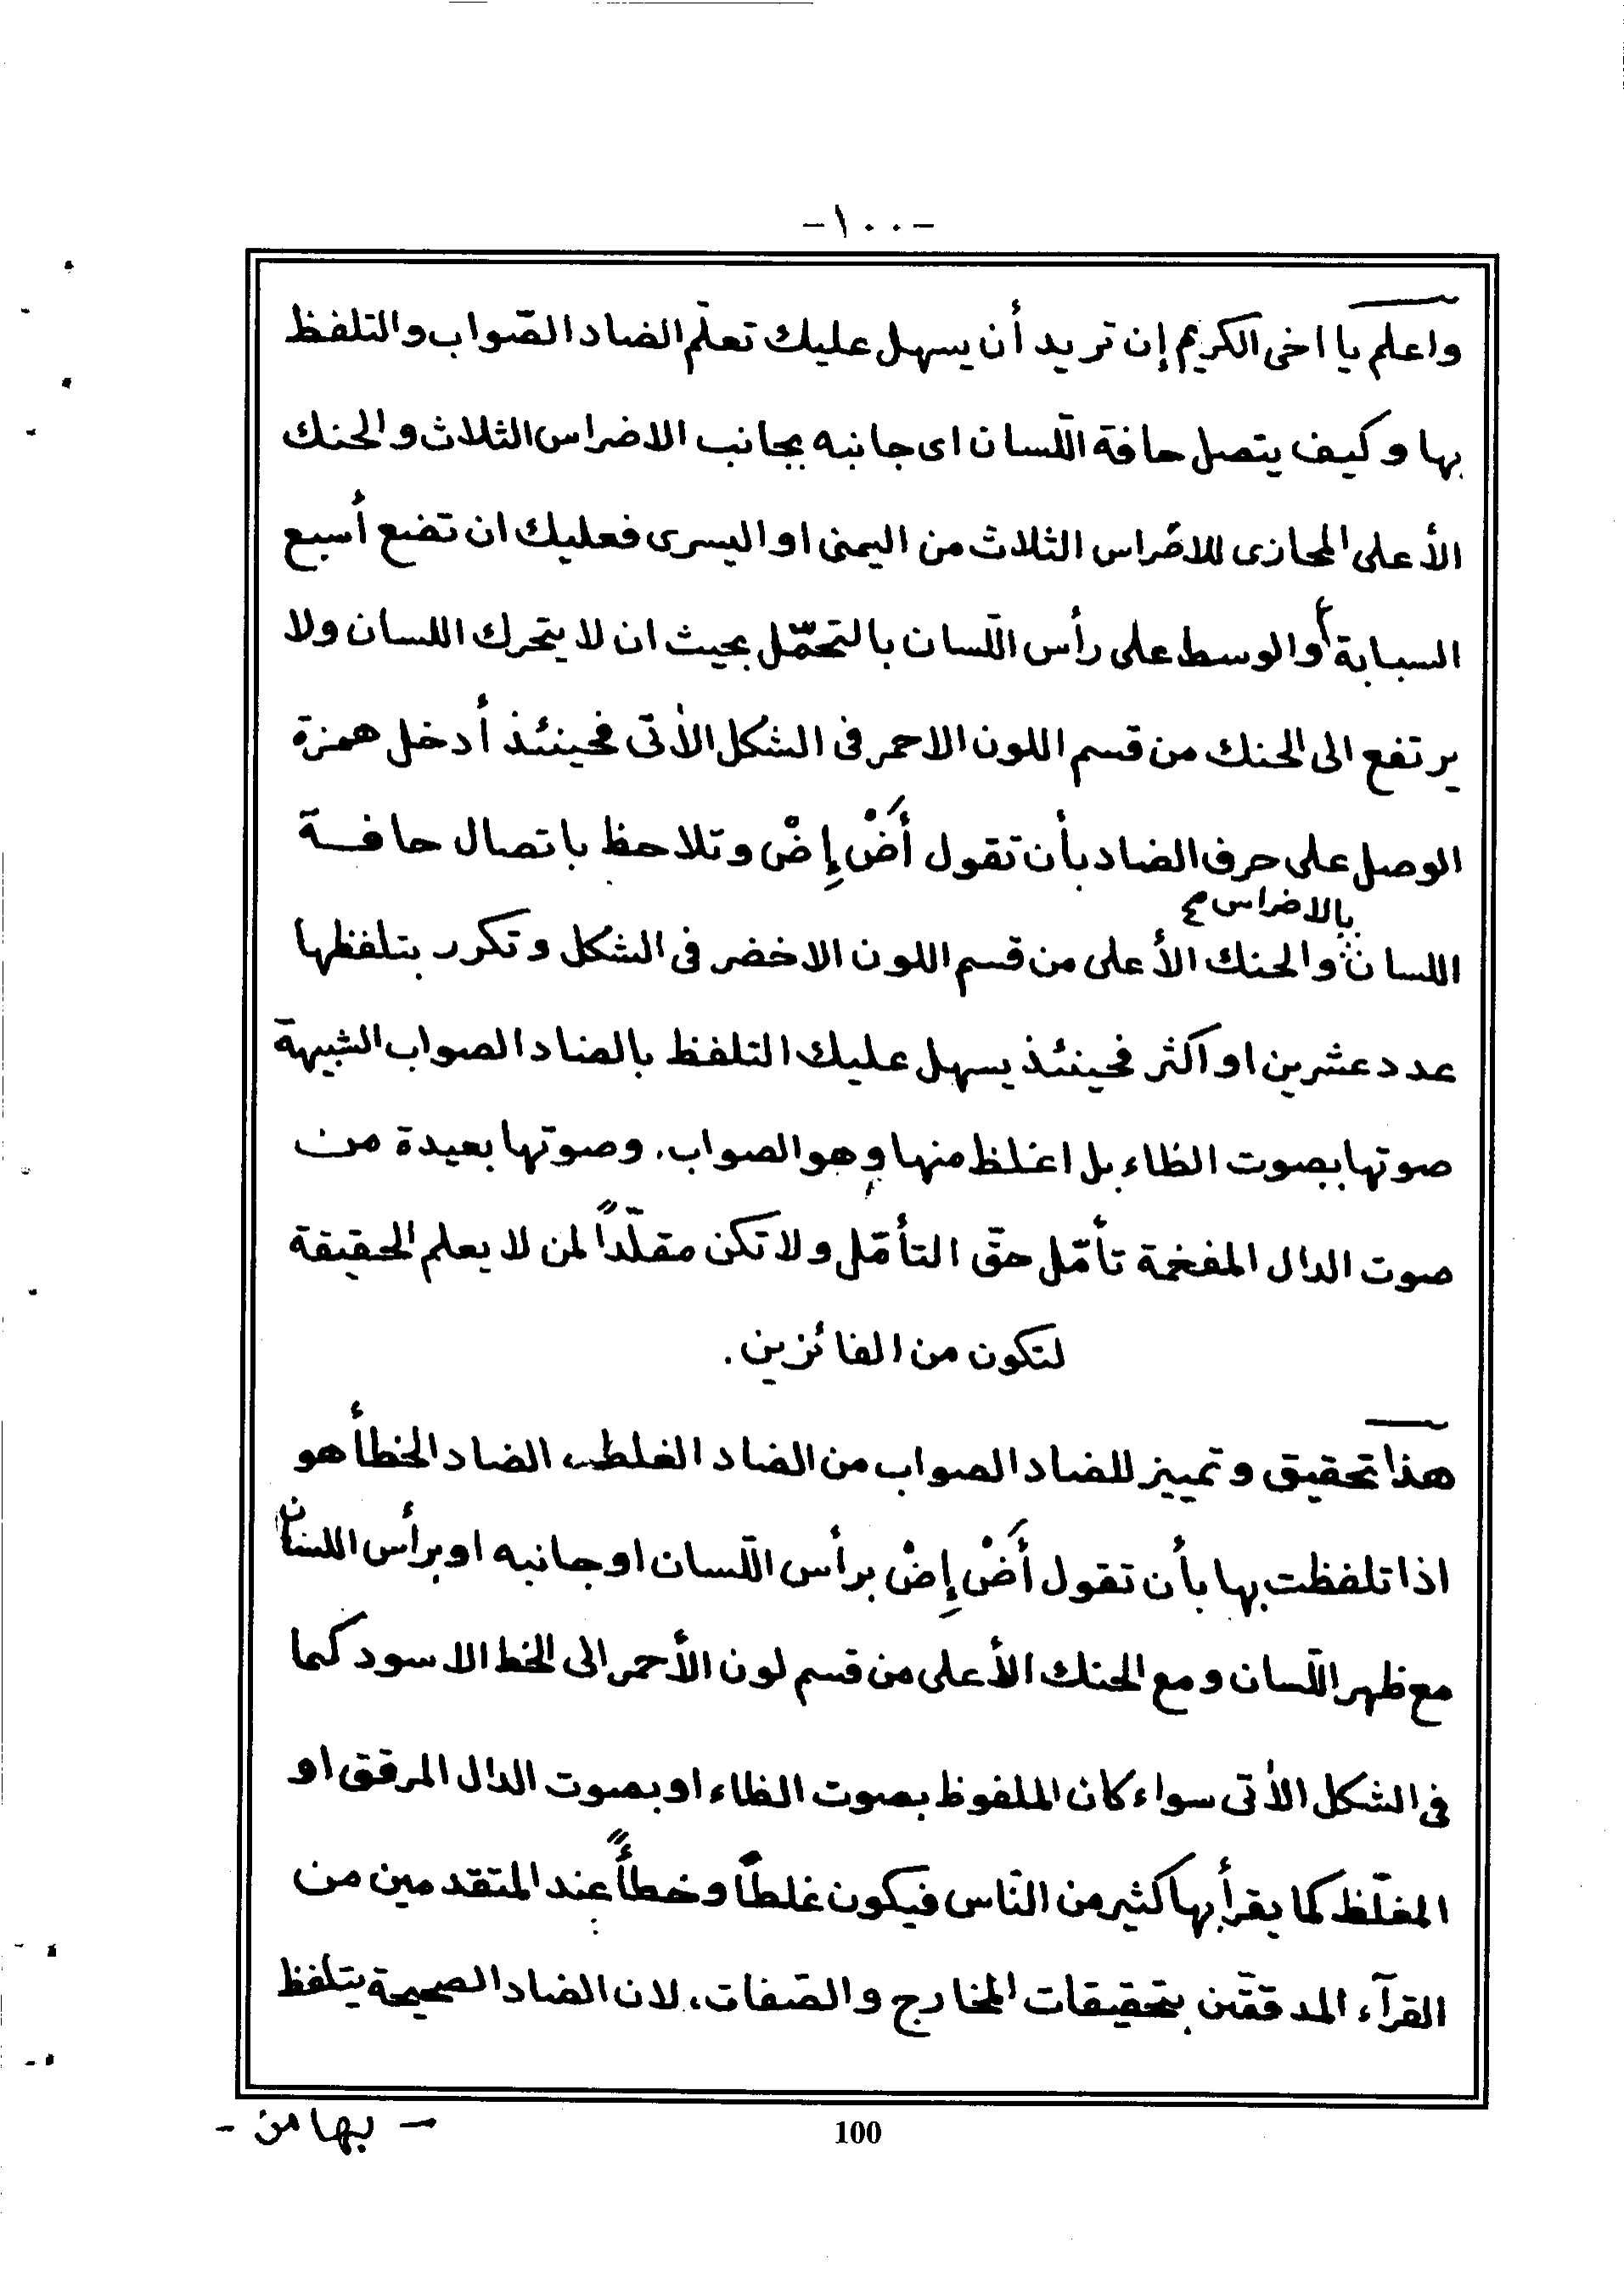 -١٠٠-
واعلم يا اخى الكريم إن تريد أن يسهل عليك تعلّم الضاد الصّواب والتلفظ
بها وكيف يتصل حافة اللّسان اى جانبه بجانب الاضراس الثلاث والحنك
الأعلى المحازى للاضراس الثلاث من اليمنى او اليسرى فعليك ان تضع أسبع
السبابة والوسط على رأس اللّسان بالتحمّل بحيث ان لا يتحرك اللسان ولا
يرتفع الى الحنك من قسم اللون الاحمر فى الشكل الأتى فحينئذ أدخل همزة
الوصل على حرف الضاد بأن تقول أَضْ إِضْ وتلاحظ باتصال حافة
بالاضراس صح
اللسان والحنك الأعلى من قسم اللون الاخضر فى الشكل وتكرر بتلفظها
عدد عشرين او اكثر فحينئذ يسهل عليك التلفظ بالضاد الصواب الشبيهة
صوتها بصوت الظاء بل اغلظ منها وهو الصواب. وصوتها بعيدة من
صوت الدال المفخمة تأمّل حقّ التأمّل ولا تكن مقلّداً لمن لا يعلم الحقيقة
لتكون من الفائزين.
هذا تحقيق وتمييز للضاد الصواب من الضاد الغلط، الضاد الخطأ هو
اذا تلفظت بها بأن تقول أَضْ إِضْ برأس اللّسان او جانبه او برأس اللسان
مع ظهر اللّسان ومع الحنك الأعلى من قسم لون الأحمر الى الخط الاسود كما
فى الشكل الأتى سواء كان الملفوظ بصوت الظاء او بصوت الدال المرقق او
المغلّظ كما يقرأ بها كثير من النّاس فيكون غلطاً وخطأً عند المتقدمين من
القرآء المدققّين بتحقيقات المخارج والصّفات، لان الضاد الصحيحة يتلفظ
- بها من -
100